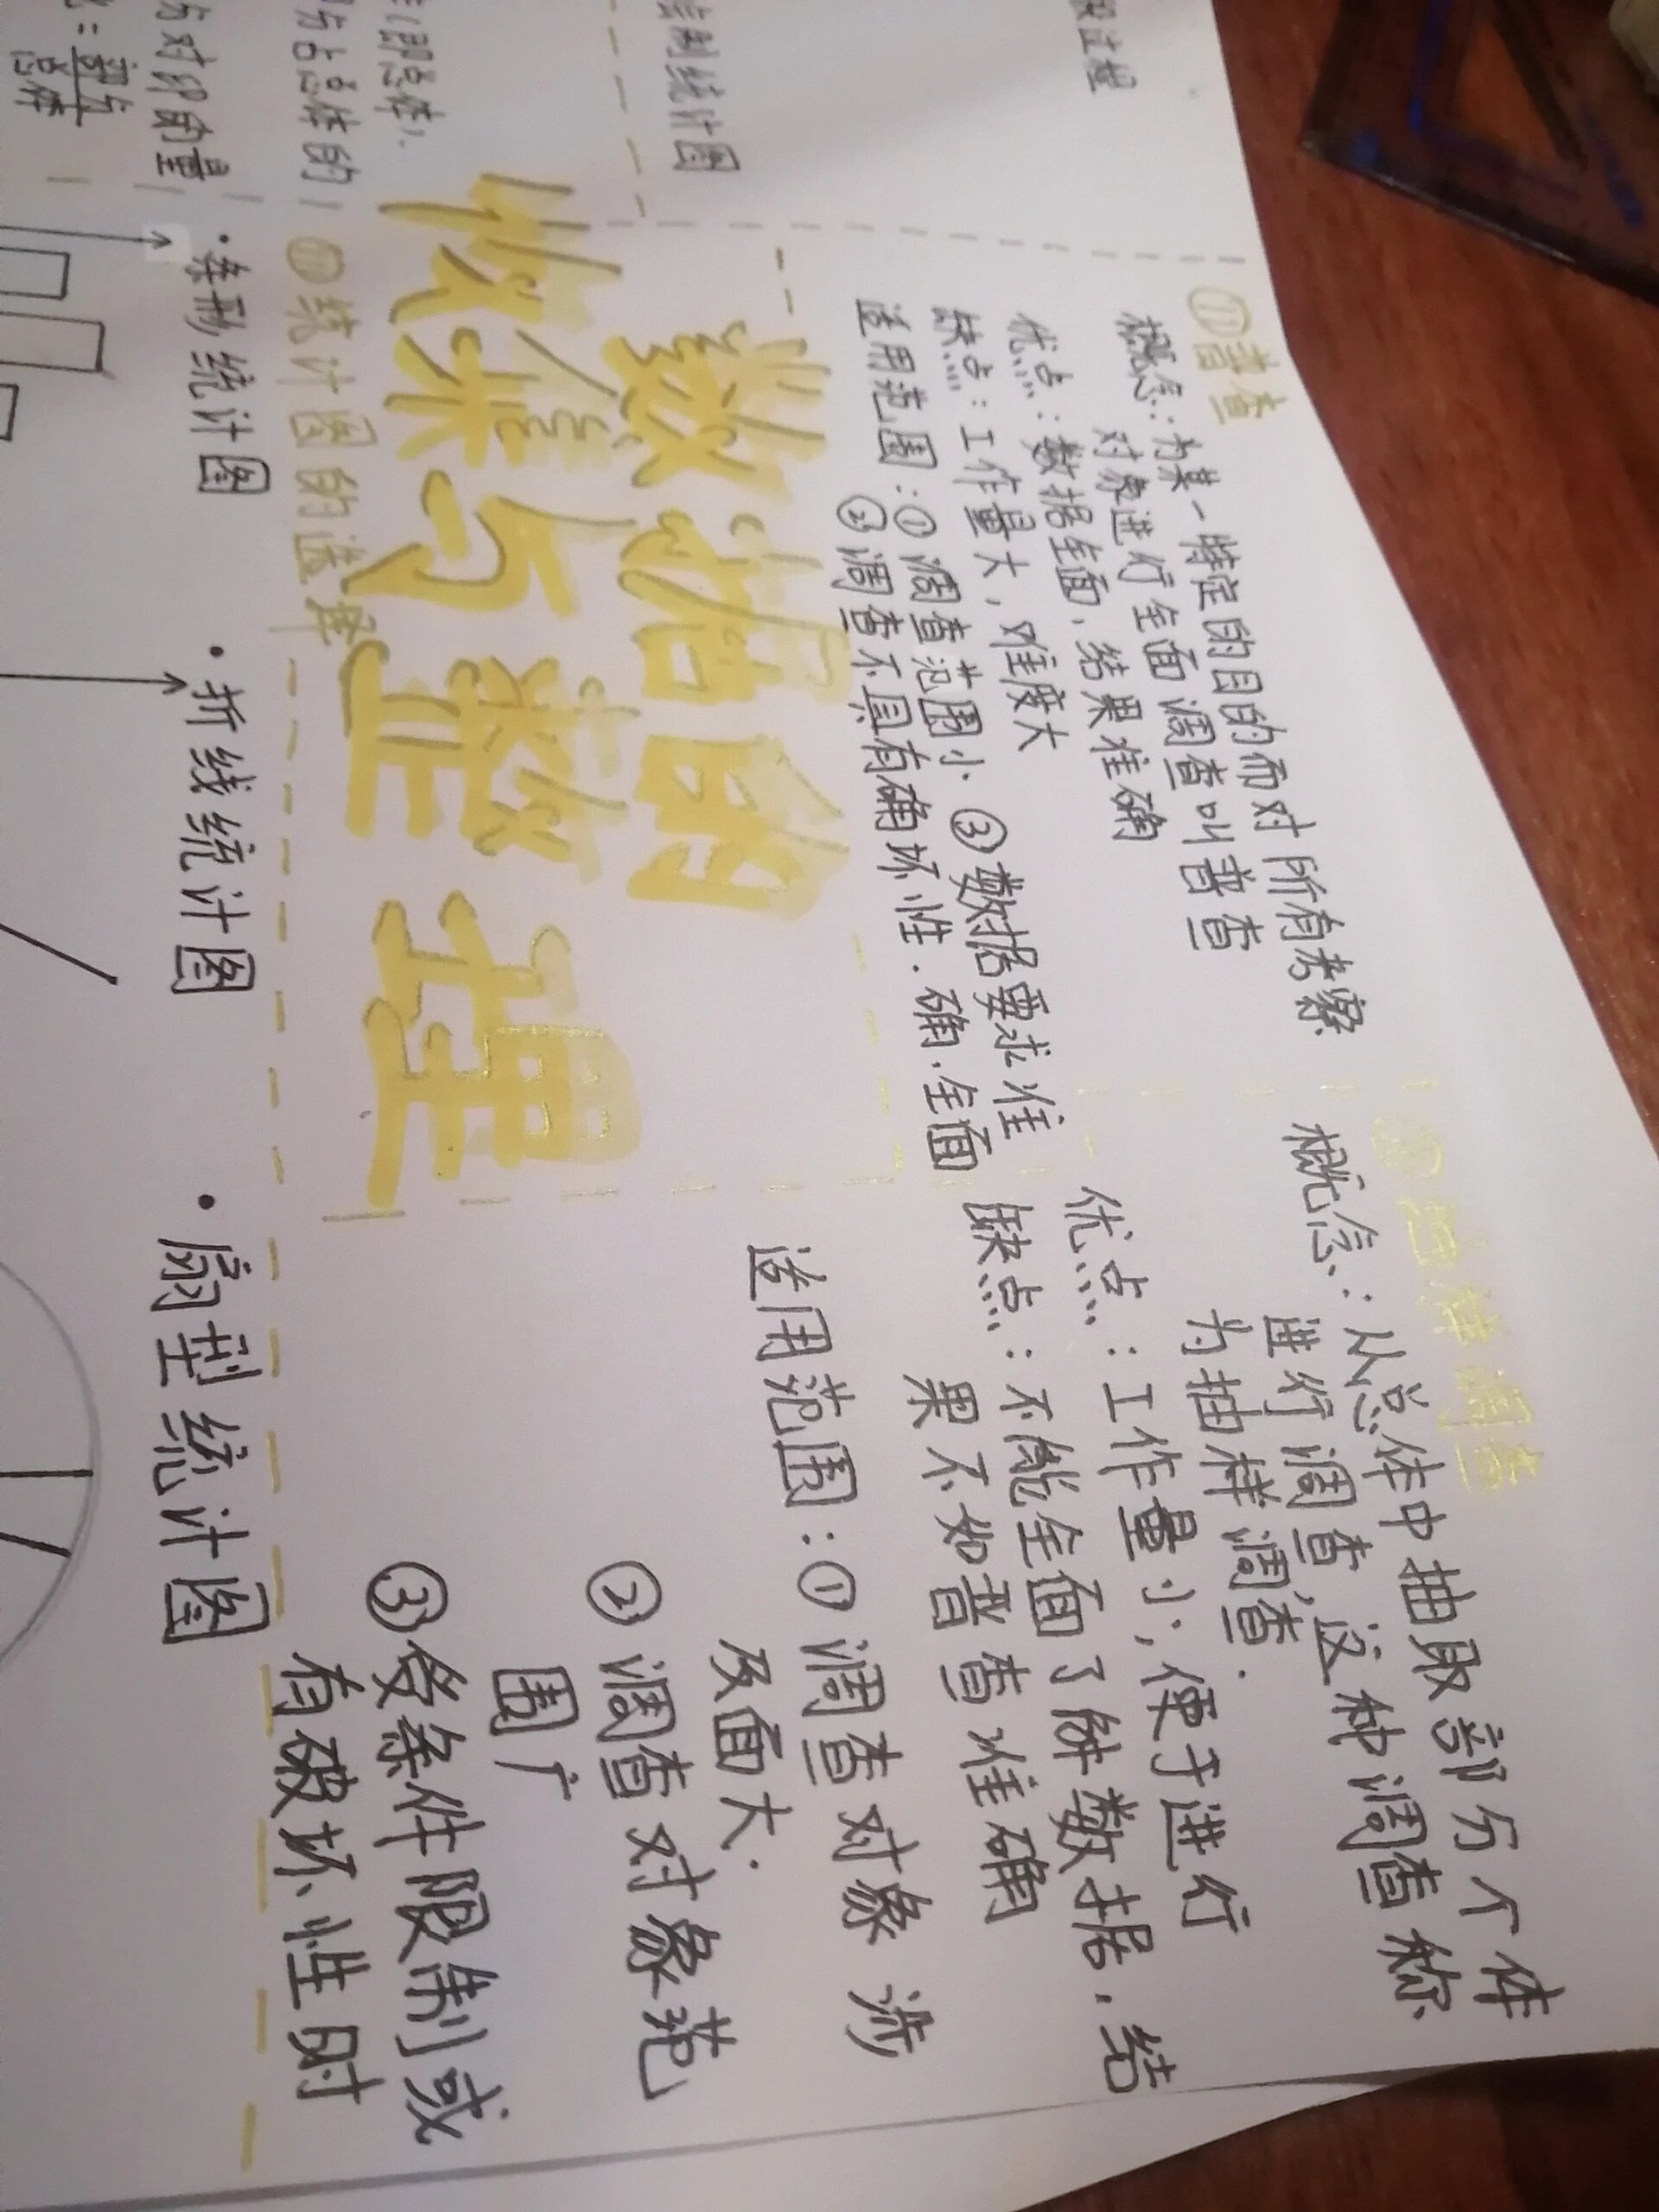 设过程
绘制统计图
(即总体),
与占总体的
与对印的量
部分
总体
数据的
收集与整理
①普查
概念:为某一特定的目的而对所有考察
对象进行全面调查叫普查
优点:数据全面,结果准确
缺点:工作量大,难度大
适用范围:①调查范围小 ③数据要求准
②调查不具有确坏性.确.全面
②抽样调查
概念:从总体中抽取部分个体
进行调查,这种调查称
为抽样调查.
优点:工作量小,便于进行
缺点:不能全面了解数据,结
果不如普查准确
适用范围:①调查对象涉
及面大.
②调查对象范
围广
③受条件限制或
有破坏性时
统计图的选择
·条形统计图
·折线统计图
·扇型统计图